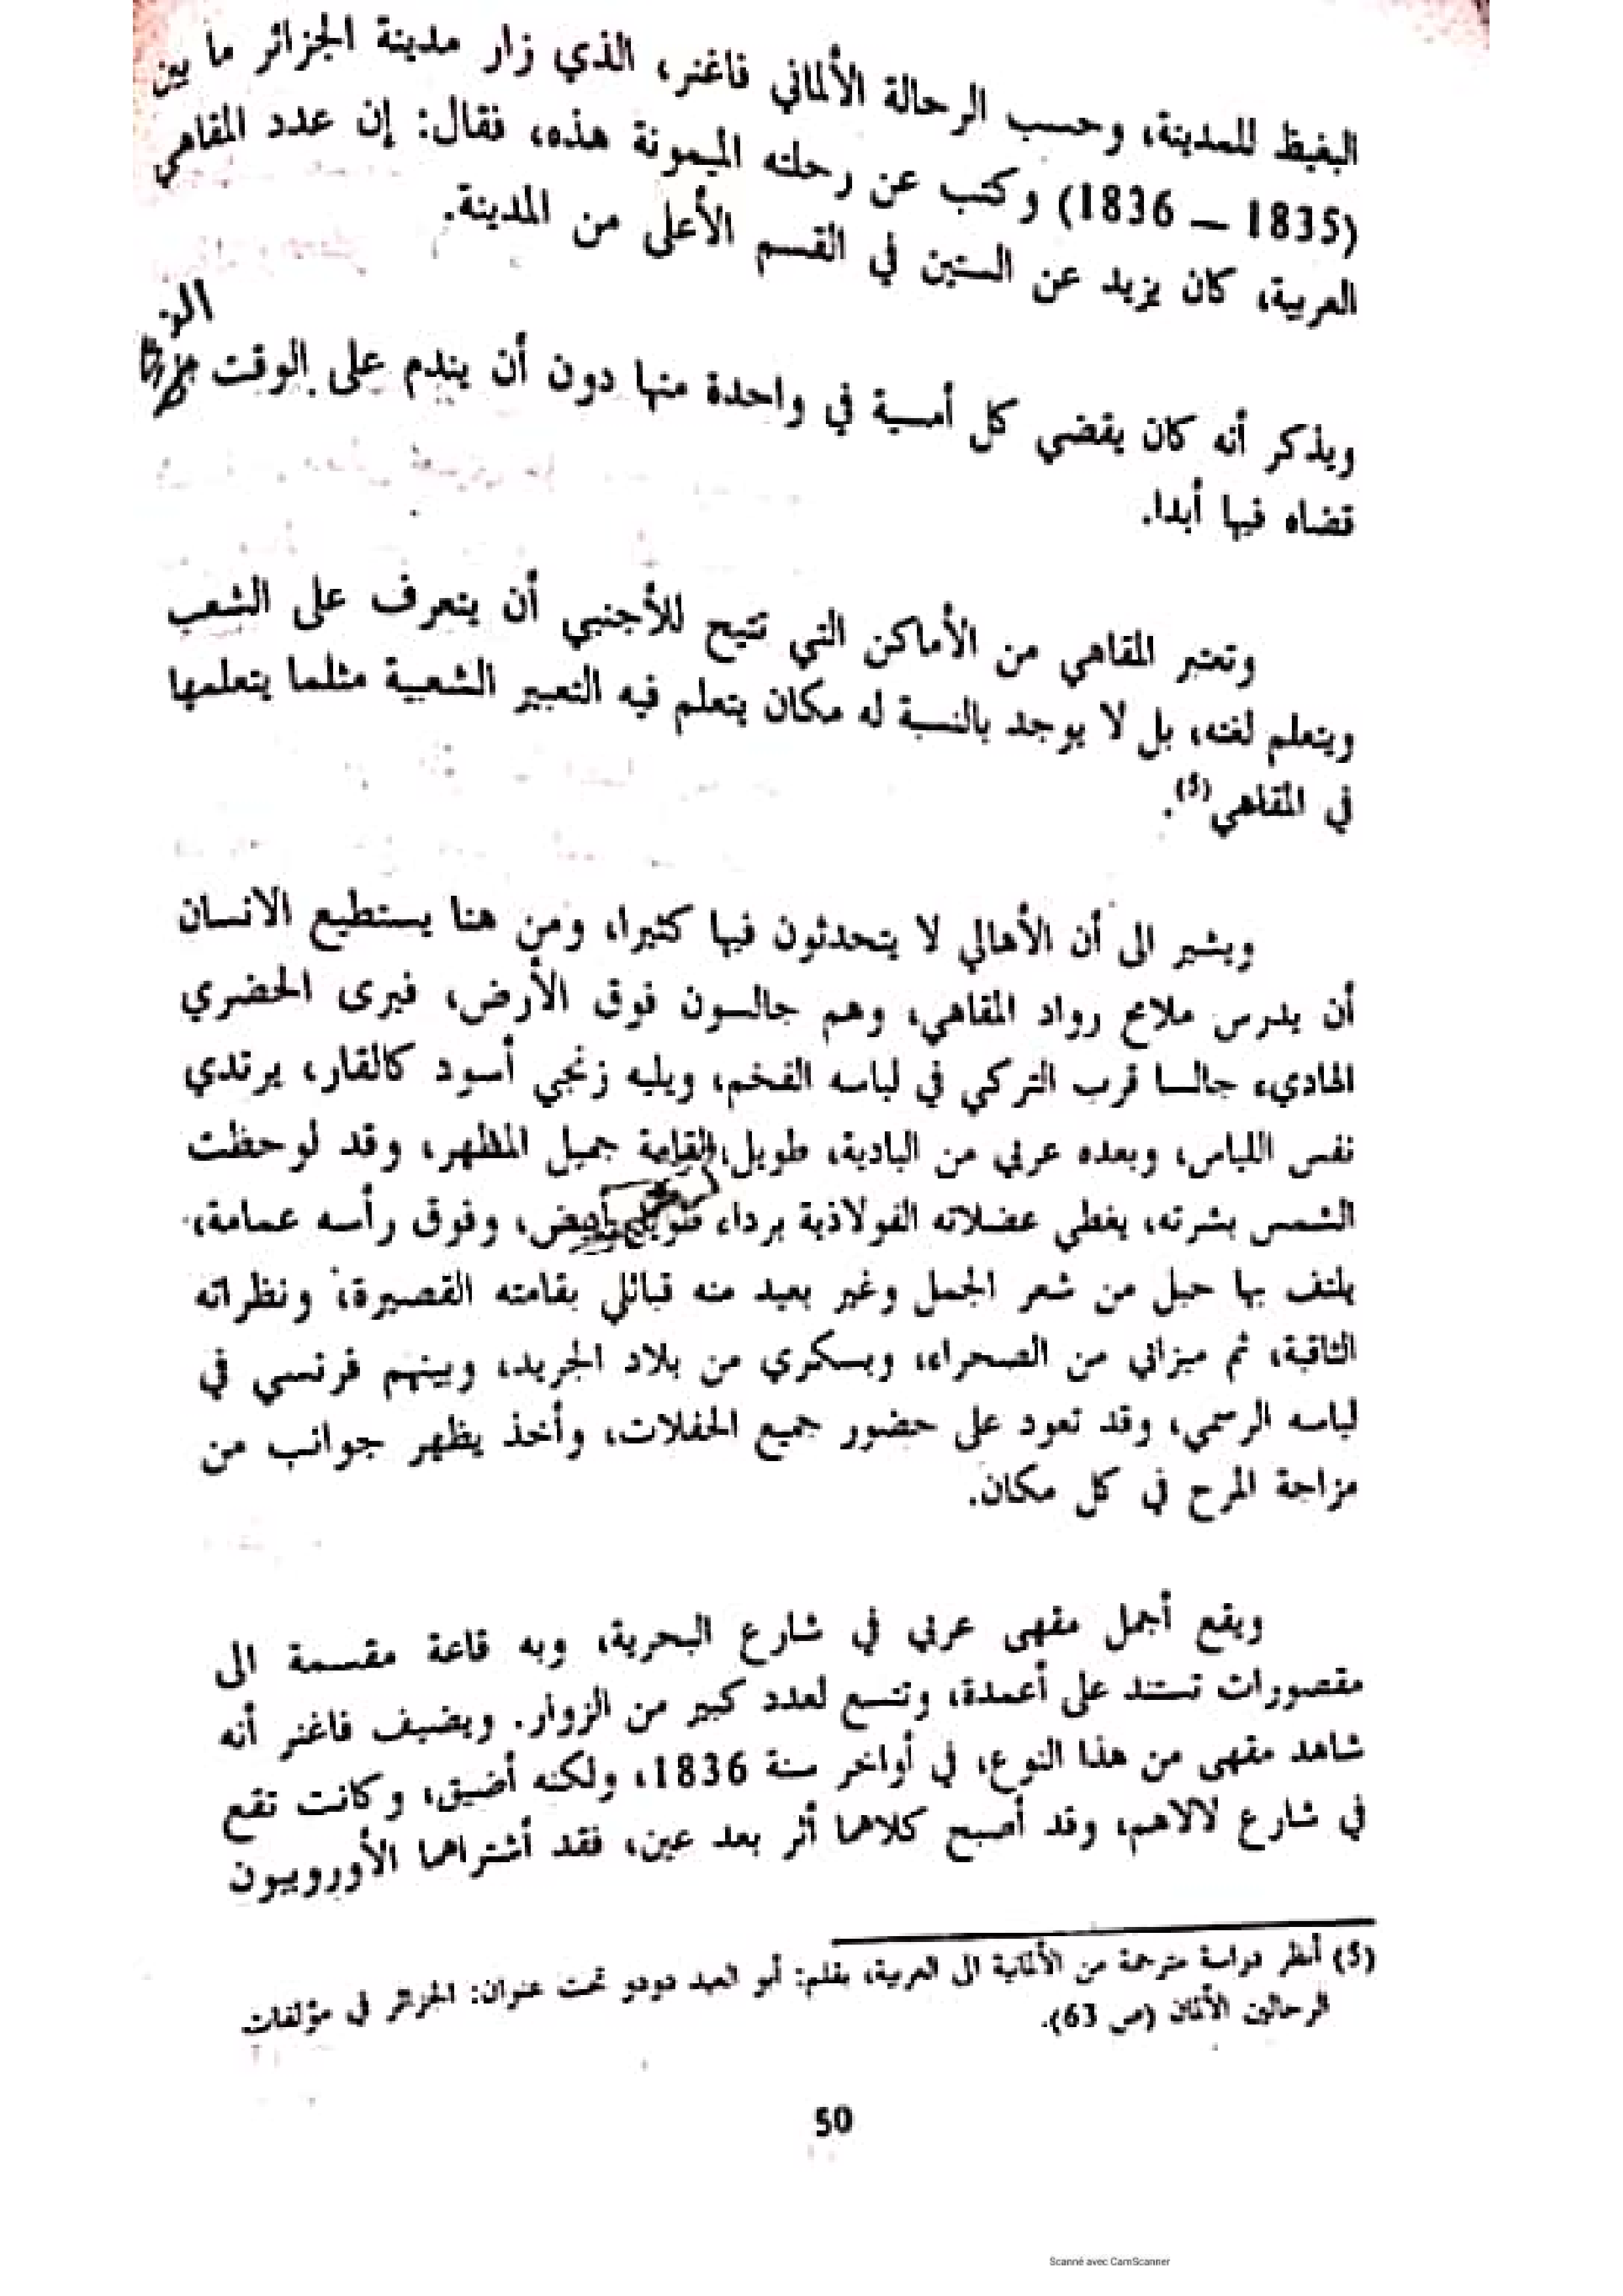 البغيظ للمدينة، وحسب الرحالة الألماني فاغنر، الذي زار مدينة الجزائر ما بين
(1835 — 1836) وكتب عن رحلته الميمونة هذه، فقال: إن عدد المقاهي
العربية، كان يزيد عن الستين في القسم الأعلى من المدينة.
ويذكر أنه كان يقضي كل أمسية في واحدة منها دون أن يندم على الوقت
قضاه فيها أبدا.
وتعتبر المقاهي من الأماكن التي تتيح للأجنبي أن يتعرف على الشعب
ويتعلم لغته، بل لا يوجد بالنسبة له مكان يتعلم فيه التعبير الشعبية مثلما يتعلمها
في المقاهي(5).
ويشير الى أن الأهالي لا يتحدثون فيها كثيرا، ومن هنا يستطيع الانسان
أن يدرس ملامح رواد المقاهي، وهم جالسون فوق الأرض، فيرى الحضري
الهادي، جالسا قرب التركي في لباسه الفخم، ويليه زنجي أسود كالقار، يرتدي
نفس اللباس، وبعده عربي من البادية، طويل القامة جميل المظهر، وقد لوحظت
الشمس بشرته، يغطي عضلاته الفولاذية برداء طويل أبيض، وفوق رأسه عمامة،
يلتف بها حبل من شعر الجمل وغير بعيد منه قبائلي بقامته القصيرة، ونظراته
الثاقبة، ثم ميزاني من الصحراء، وبسكري من بلاد الجريد، وبينهم فرنسي في
لباسه الرسمي، وقد تعود على حضور جميع الحفلات، وأخذ يظهر جوانب من
مزاجة المرح في كل مكان.
ويقع أجمل مقهى عربي في شارع البحرية، وبه قاعة مقسمة الى
مقصورات تستند على أعمدة، وتتسع لعدد كبير من الزوار. ويضيف فاغنر أنه
شاهد مقهى من هذا النوع، في أواخر سنة 1836، ولكنه أضيق، وكانت تقع
في شارع لالاهم، وقد أصبح كلاهما أثر بعد عين، فقد أشتراهما الأوروبيون
(5) أنظر دراسة مترجمة من الألمانية الى العربية، بقلم: أبو العيد دودو تحت عنوان: الجزائر في مؤلفات
الرحالين الألمان (ص 63).
50
Scanné avec CamScanner